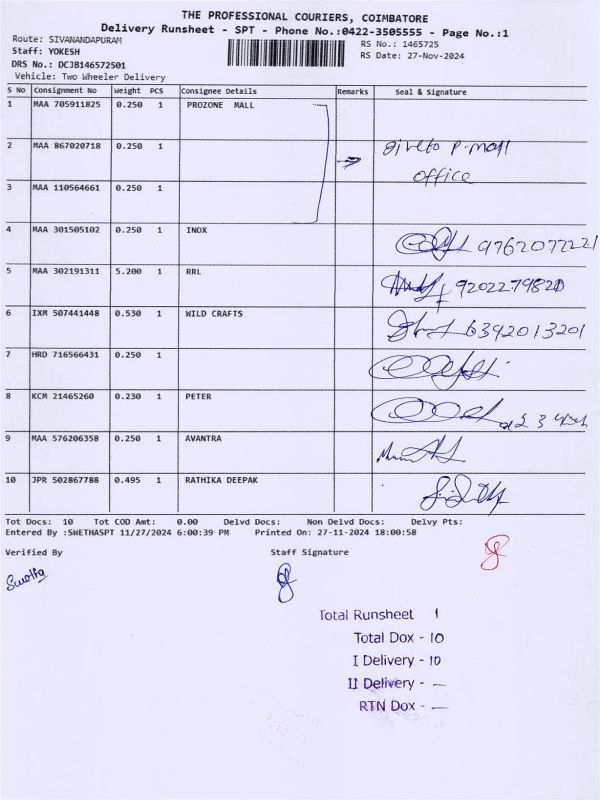 THE PROFESSIONAL COURIERS, COIMBATORE
Delivery Runsheet - SPT - Phone No.:0422-3505555 - Page No.:1
Route: SIVANANDAPURAM RS No.: 1465725
Staff: YOKESH RS Date: 27-Nov-2024
DRS No.: DCJB146572501
Vehicle: Two Wheeler Delivery
S No Consignment No Weight PCS Consignee Details Remarks Seal & Signature
1 MAA 705911825 0.250 1 PROZONE MALL
2 MAA 867020718 0.250 1 P.mall
office
3 MAA 110564661 0.250 1
4 MAA 301505102 0.250 1 INOX 9762072221
5 MAA 302191311 5.200 1 RRL
6 IXM 507441448 0.530 1 WILD CRAFTS 6392013201
7 HRD 716566431 0.250 1
8 KCM 21465260 0.230 1 PETER
9 MAA 576206358 0.250 1 AVANTRA
10 JPR 502867788 0.495 1 RATHIKA DEEPAK
Tot Docs: 10 Tot COD Amt: 0.00 Delvd Docs: Non Delvd Docs: Delvy Pts:
Entered By :SWETHASPT 11/27/2024 6:00:39 PM Printed On: 27-11-2024 18:00:58
Verified By Staff Signature
Total Runsheet 1
Total Dox - 10
I Delivery - 10
II Delivery - —
RTN Dox - —